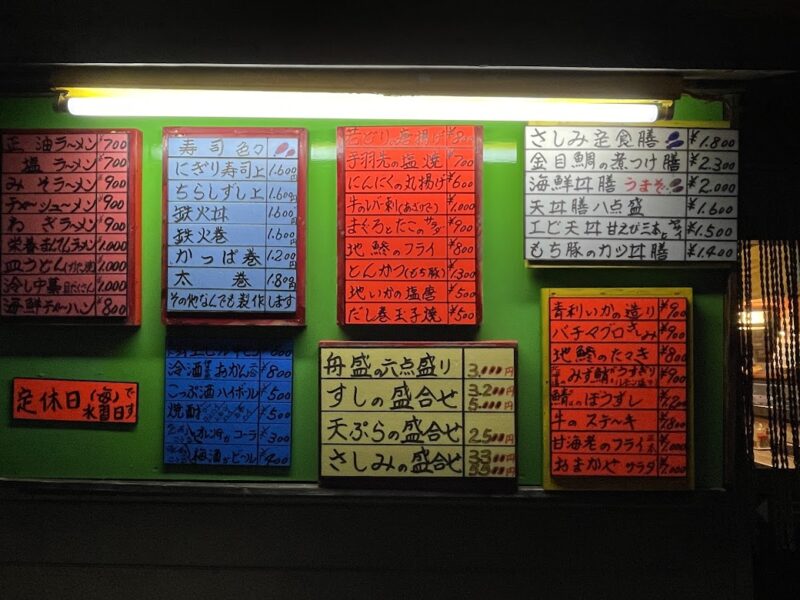 正油ラーメン ¥700
塩ラーメン ¥700
みそラーメン ¥900
チャーシューメン ¥900
ねぎラーメン ¥900
栄養ラーメン ¥1.000
皿うどん ¥1.000
冷し中華 ¥1.000
海鮮チャーハン ¥800
寿司色々
にぎり寿司上 1.600円
ちらしずし上 1.600円
鉄火丼 1.600円
鉄火巻 1.600円
かっぱ巻 1.200円
太巻 2.500円
その他なんでも製作します
若どりの唐揚げ ¥800
手羽先の塩焼 ¥700
にんにくの丸揚げ ¥600
牛のレバ刺(あぶりさし) ¥1.000
まぐろとたこのサラダ ¥900
地鯵のフライ ¥800
とんかつ(もち豚) ¥1.300
地いかの塩辛 ¥500
だし巻玉子焼 ¥500
さしみ定食膳 ¥1.800
金目鯛の煮つけ膳 ¥2.300
海鮮丼膳 うまぞ ¥2.000
天丼膳八点盛 ¥1.600
エビ天丼 甘えび三本と ¥1.500
もち豚のカツ丼膳 ¥1.400
定休日(毎)水曜日です
冷酒 ¥800
こっぷ酒 ハイボール ¥500
焼酎 ¥500
コーラ ¥300
梅酒 ビール ¥400
舟盛の六点盛り 3,000円
すしの盛合せ 3200円 5,000円
天ぷらの盛合せ 2500円
さしみの盛合せ 3300円 5500円
青利いかの造り ¥900
バチマグロさしみ ¥900
地鯵のたたき ¥800
みず鯖 ¥900
鯖のぼうずし ¥1.200
牛のステーキ ¥1.800
甘海老のフライ 三本 ¥1.000
おまかせサラダ ¥1.000